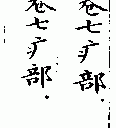 卷七疒部.
卷七疒部.